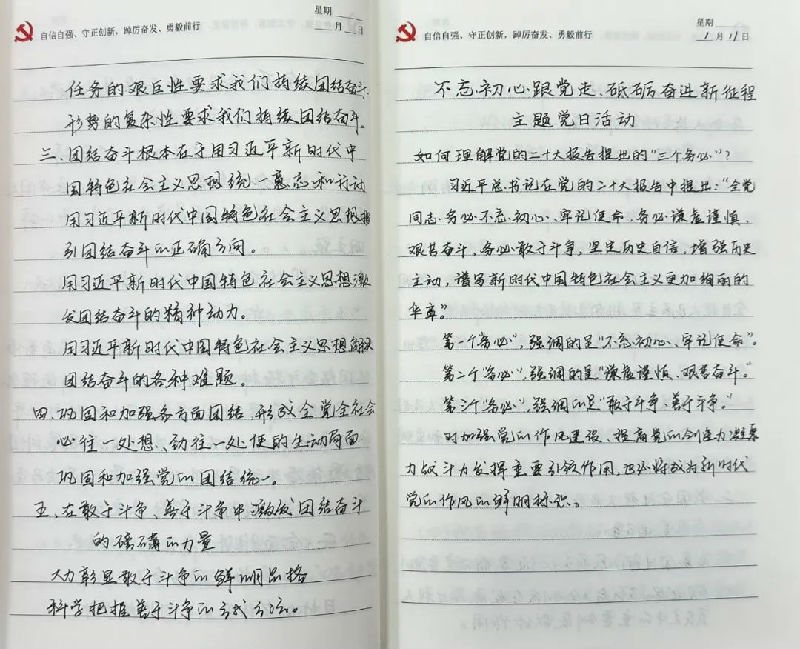 星期
自信自强、守正创新，踔厉奋发、勇毅前行
月 日
任务的艰巨性要求我们持续团结奋斗。
形势的复杂性要求我们持续团结奋斗。
三、团结奋斗根本在于用习近平新时代中
国特色社会主义思想统一意志和行动
用习近平新时代中国特色社会主义思想指
引团结奋斗的正确方向。
用习近平新时代中国特色社会主义思想激
发团结奋斗的精神动力。
用习近平新时代中国特色社会主义思想解决
团结奋斗的各种难题。
四、巩固和加强各方面团结，形成全党全社会
心往一处想、劲往一处使的生动局面
巩固和加强党的团结统一。
五、在敢于斗争、善于斗争中凝聚团结奋斗
的磅礴的力量
大力彰显敢于斗争的鲜明品格
科学把握善于斗争的方式方法。
星期
自信自强、守正创新，踔厉奋发、勇毅前行
1月11日
不忘初心跟党走、砥砺奋进新征程
主题党日活动
如何理解党的二十大报告提出的“三个务必”？
习近平总书记在党的二十大报告中提出：“全党
同志务必不忘初心、牢记使命，务必谦虚谨慎、
艰苦奋斗，务必敢于斗争，坚定历史自信，增强历史
主动，谱写新时代中国特色社会主义更加绚丽的
华章”。
第一个“务必”，强调的是“不忘初心、牢记使命”。
第二个“务必”，强调的是“谦虚谨慎、艰苦奋斗。”
第三个“务必”，强调的是“敢于斗争、善于斗争。”
对加强党的作风建设、提高党的创造力凝聚
力战斗力发挥重要引领作用，也必将成为新时代
党的作风的鲜明标识。